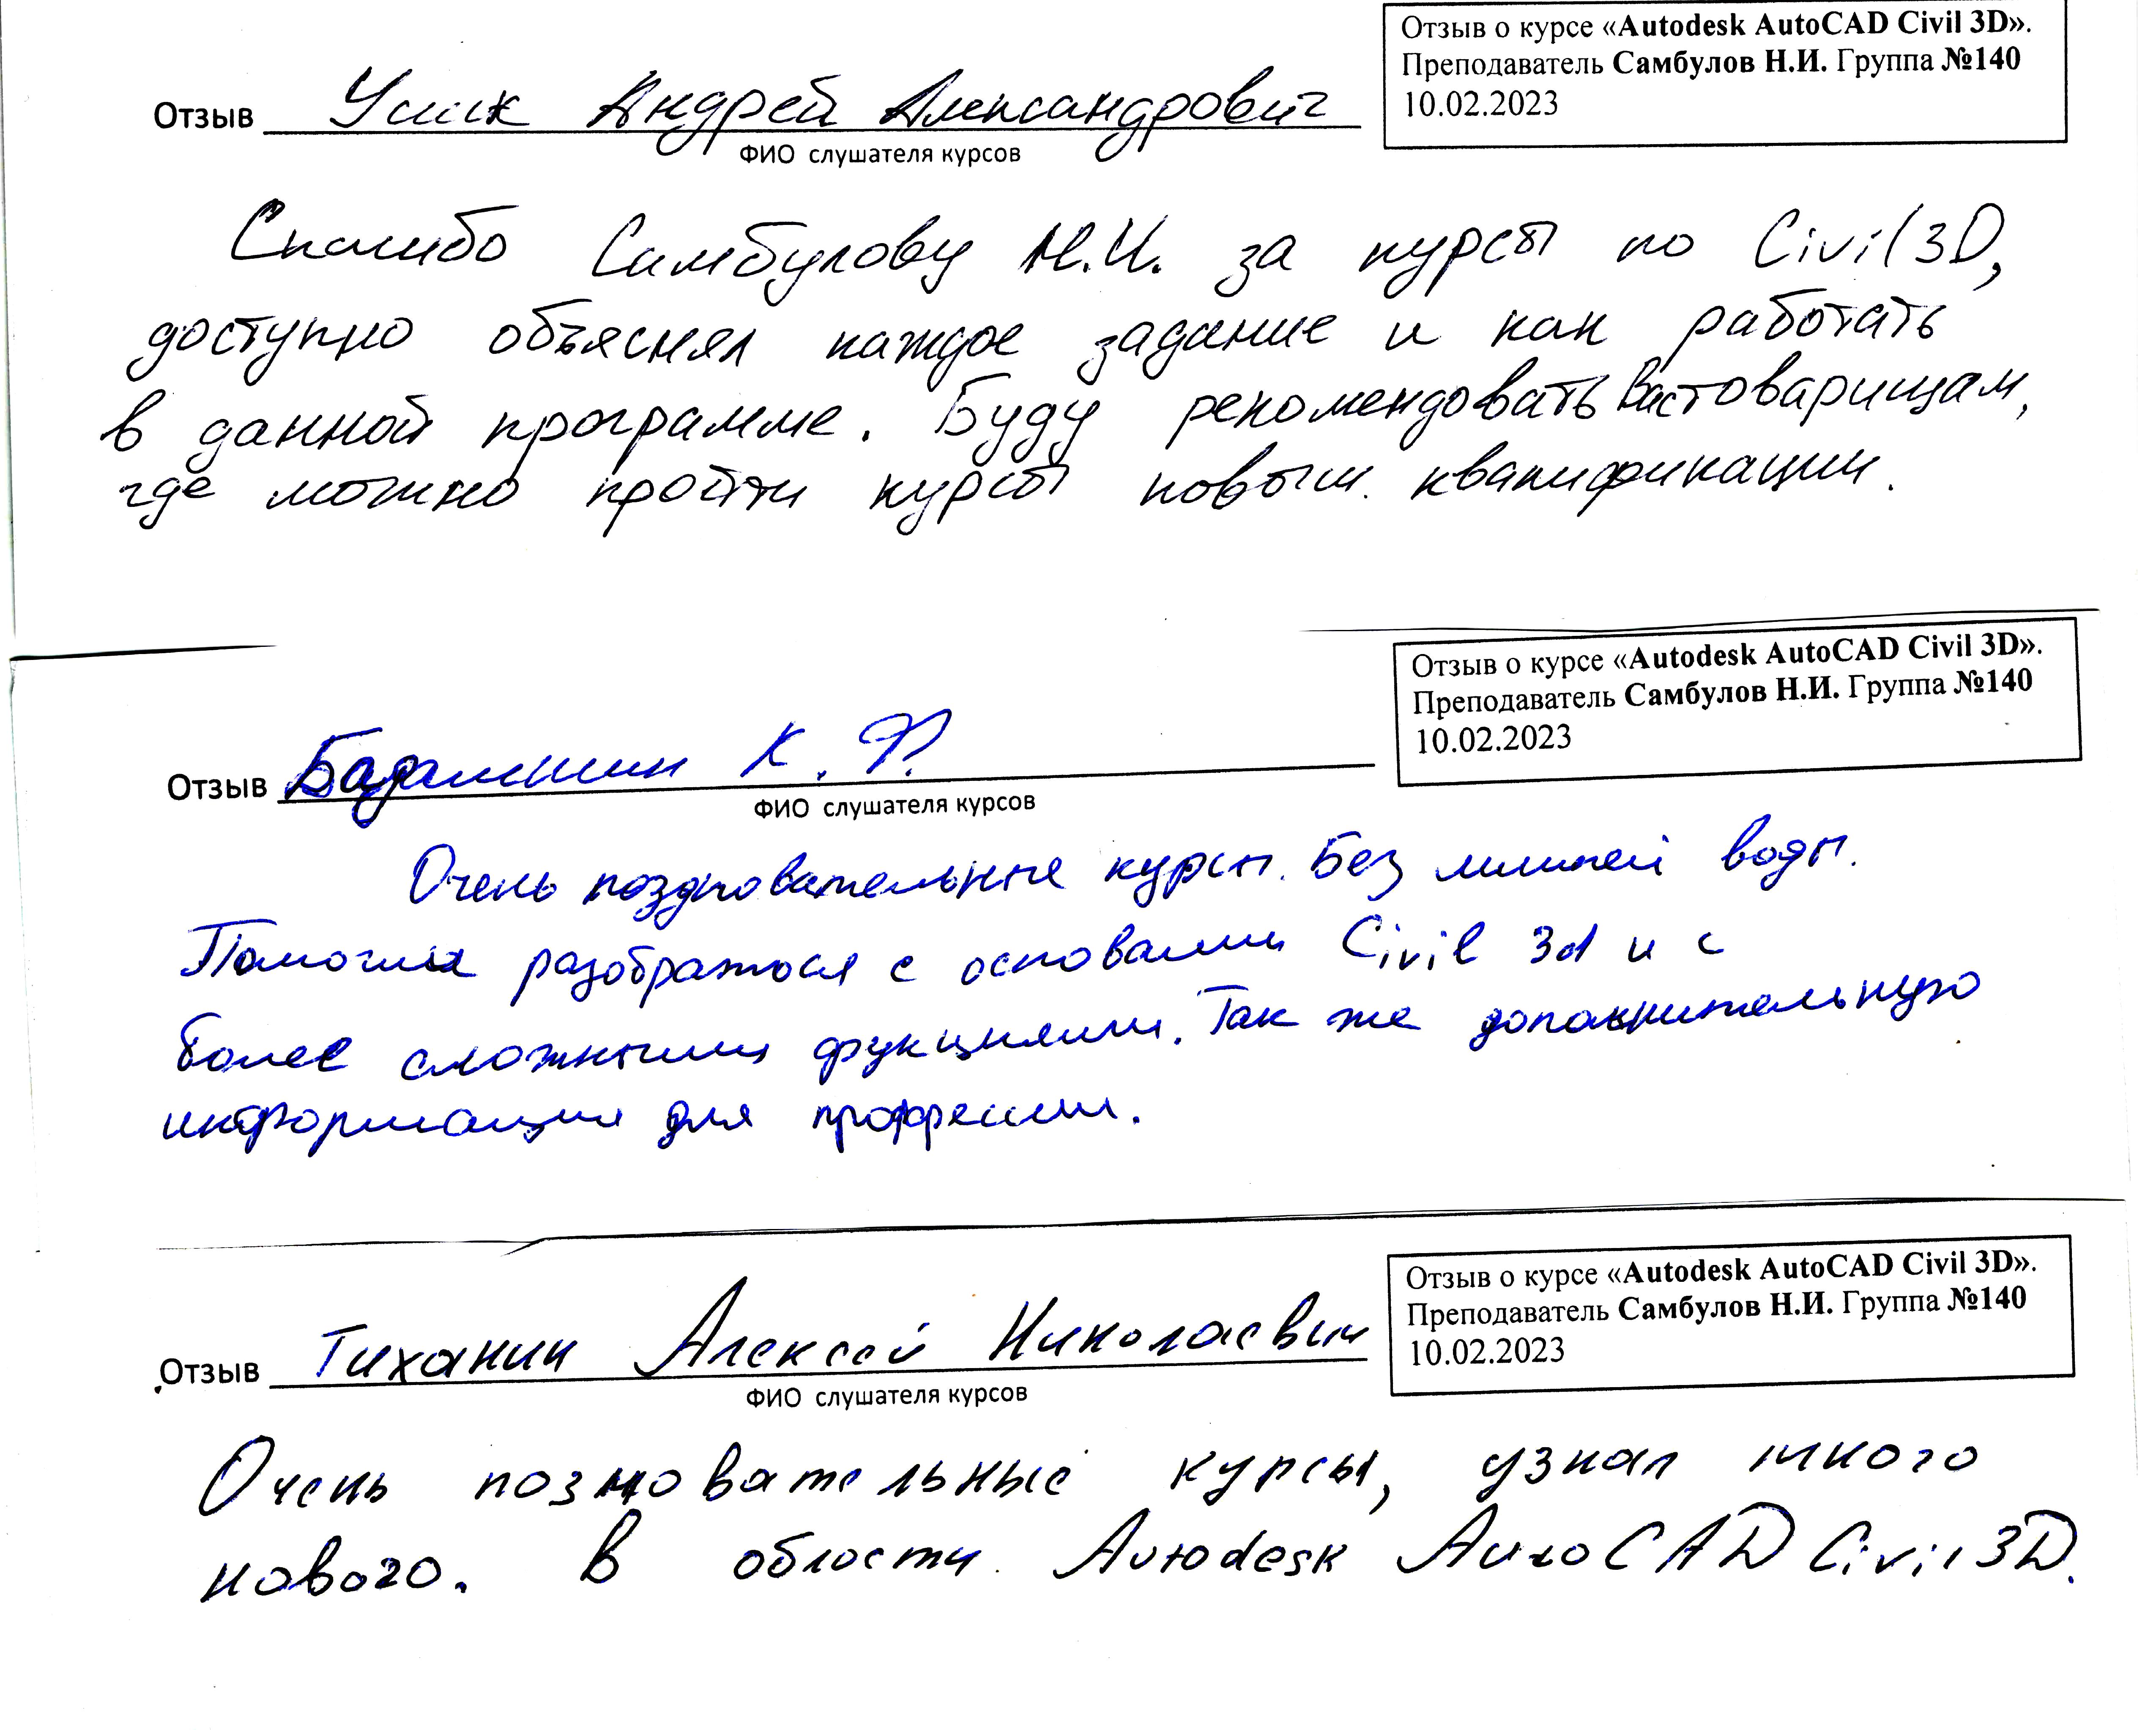 Отзыв о курсе «Autodesk AutoCAD Civil 3D».
Преподаватель Самбулов Н.И. Группа №140
10.02.2023
Отзыв Андрей Александрович
ФИО слушателя курсов
Спасибо Самбулову Н.И. за курсы по Civil 3D,
доступно объяснял каждое задание и как работать
в данной программе. Буду рекомендовать Вас товарищам,
где можно пройти курсы повыш. квалификации.
Отзыв о курсе «Autodesk AutoCAD Civil 3D».
Преподаватель Самбулов Н.И. Группа №140
10.02.2023
Отзыв К. Ф.
ФИО слушателя курсов
Очень позновательные курсы. Без лишней воды.
Помогли разобраться с основами Civil 3d и с
более сложными функциями. Так же дополнительную
информация для профессии.
Отзыв о курсе «Autodesk AutoCAD Civil 3D».
Преподаватель Самбулов Н.И. Группа №140
10.02.2023
Отзыв Тиханин Алексей Николаевич
ФИО слушателя курсов
Очень позновательные курсы, узнал много
нового. В области Autodesk AutoCAD Civil 3D.